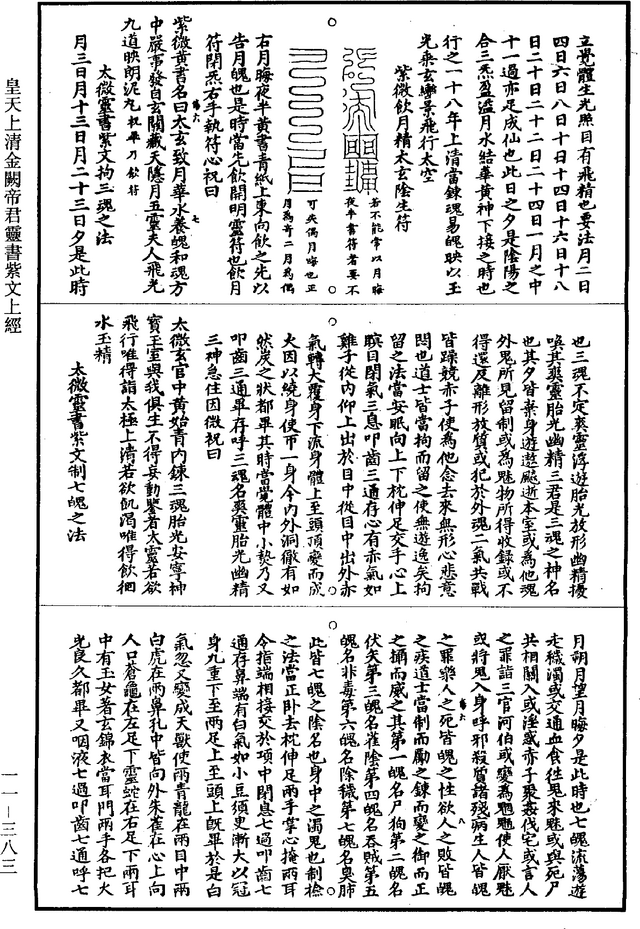 皇天上清金闕帝君靈書紫文上經
一一—三八三
立覺體生光照目有飛精也要法月二日
四日六日八日十日十四日十六日十八
日二十日二十二日二十四日一月之中
十一過亦足成仙也此日之夕是陰陽之
合三炁盈溢月水結華黃神下接之時也
行之一十八年上清當鍊魂易魄映以玉
光乘玄轡景飛行太空
紫微飲月精太玄陰生符
若不能常以月晦
夜半書符者要不
可失偶月晦也正
月為奇二月為偶
右月晦夜半黃書青紙上東向飲之先以
告月魄也是時當先飲開明靈符也飲月
符閉炁右手執符心祝曰
紫微黃書名曰太玄致月華水養魄和魂方
中嚴事發自玄關藏天隱月五靈夫人飛光
九道映朗泥丸祝畢乃飲符
太微靈書紫文拘三魂之法
月三日月十三日月二十三日夕是此時
也三魂不定爽靈浮遊胎光放形幽精擾
喚其爽靈胎光幽精三君是三魂之神名
也其夕皆棄身遊遨飈逝本室或為他魂
外鬼所見留制或為魅物所得收錄或不
得還及離形放質或犯於外魂二氣共戰
皆躁競赤子使為他念去來無形心悲意
悶也道士皆當拘而留之使無遊逸矣拘
留之法當安眠向上下枕伸足交手心上
瞑目閉氣三息叩齒三通存心有赤氣如
雞子從內仰上出於目中從目中出外赤
氣轉大覆身下流身體上至頭頂變而成
火因以燒身使帀一身令內外洞徹有如
然炭之狀都畢其時當覺體中小熱乃又
叩齒三通畢存呼三魂名爽靈胎光幽精
三神急住因微祝曰
太微玄宮中黃始青內鍊三魂胎光安寧神
寶玉室與我俱生不得妄動鑒者太靈若欲
飛行唯得詣太極上清若欲飢渴唯得飲徊
水玉精
太微靈書紫文制七魄之法
月朔月望月晦夕是此時也七魄流蕩遊
走穢濁或交通血食往鬼來魅或與死尸
共相關入或淫惑赤子聚姦伐宅或言人
之罪詣三官河伯或變為魍魎使人厭魅
或將鬼入身呼邪殺質諸殘病生人皆魄
之罪樂人之死皆魄之性欲人之敗皆魄
之疾道士當制而厲之鍊而變之御而正
之攝而威之其第一魄名尸狗第二魄名
伏矢第三魄名雀陰第四魄名吞賊第五
魄名非毒第六魄名除穢第七魄名臭肺
此皆七魄之陰名也身中之濁鬼也制檢
之法當正卧去枕伸足兩手掌心掩兩耳
令指端相接交於項中閉息七過叩齒七
通存鼻端有白氣如小豆須臾漸大以冠
身九重下至兩足上至頭上既畢於是白
氣忽又變成天獸使兩青龍在兩目中兩
白虎在兩鼻孔中皆向外朱雀在心上向
人口蒼龜在左足下靈蛇在右足下兩耳
中有玉女著玄錦衣當耳門兩手各把火
光良久都畢又咽液七過叩齒七通呼七